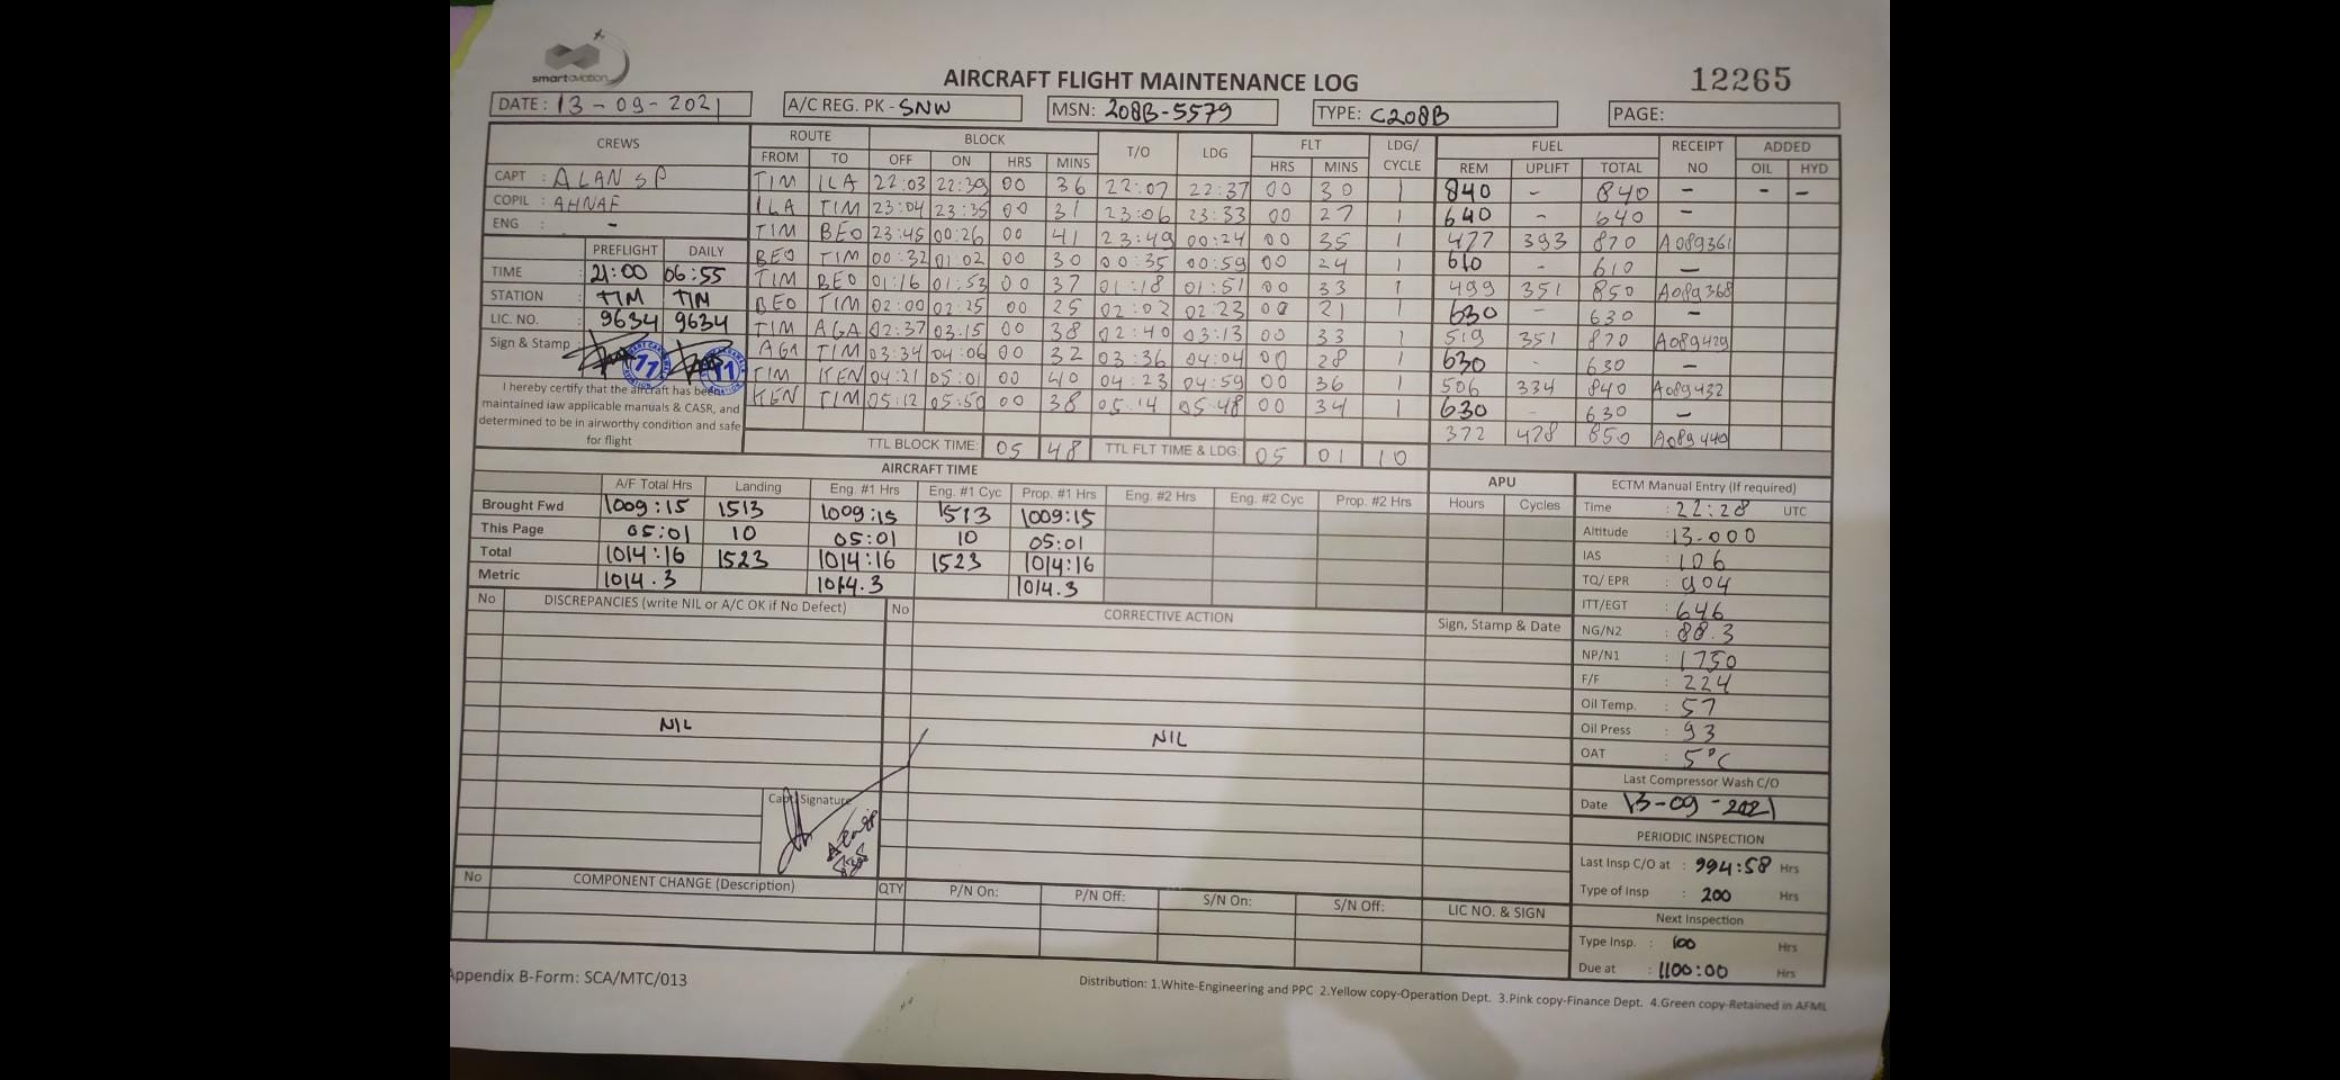 smartaviation
AIRCRAFT FLIGHT MAINTENANCE LOG
12265
DATE: 13-09-2021 A/C REG. PK-SNW MSN: 208B-5579 TYPE: C208B PAGE:
CREWS ROUTE BLOCK T/O LDG FLT LDG/CYCLE FUEL RECEIPT NO ADDED
FROM TO OFF ON HRS MINS HRS MINS REM UPLIFT TOTAL OIL HYD
CAPT : ALAN SP
COPIL : AHNAF
ENG : -
TIM ILA 22:03 22:39 00 36 22:07 22:37 00 30 1 840 - 840 - - -
ILA TIM 23:04 23:35 00 31 23:06 23:33 00 27 1 640 - 640 -
TIM BEO 23:45 00:26 00 41 23:49 00:24 00 35 1 477 393 870 A089361
BEO TIM 00:32 01:02 00 30 00:35 00:59 00 24 1 610 - 610 -
TIM BEO 01:16 01:53 00 37 01:18 01:51 00 33 1 499 351 850 A089368
BEO TIM 02:00 02:25 00 25 02:02 02:23 00 21 1 630 - 630 -
TIM AGA 02:37 03:15 00 38 02:40 03:13 00 33 1 519 351 870 A089429
AGA TIM 03:34 04:06 00 32 03:36 04:04 00 28 1 630 - 630 -
TIM KEN 04:21 05:01 00 40 04:23 04:59 00 36 1 506 334 840 A089432
KEN TIM 05:12 05:50 00 38 05:14 05:48 00 34 1 630 - 630 -
372 478 850 A089440
PREFLIGHT DAILY
TIME : 21:00 06:55
STATION : TIM TIM
LIC. NO. : 9634 9634
Sign & Stamp :
I hereby certify that the aircraft has been
maintained iaw applicable manuals & CASR, and
determined to be in airworthy condition and safe
for flight
TTL BLOCK TIME: 05 48 TTL FLT TIME & LDG: 05 01 10
AIRCRAFT TIME APU
A/F Total Hrs Landing Eng. #1 Hrs Eng. #1 Cyc Prop. #1 Hrs Eng. #2 Hrs Eng. #2 Cyc Prop. #2 Hrs Hours Cycles
Brought Fwd 1009:15 1513 1009:15 1513 1009:15
This Page 05:01 10 05:01 10 05:01
Total 1014:16 1523 1014:16 1523 1014:16
Metric 1014.3 1014.3 1014.3
ECTM Manual Entry (If required)
Time : 22:28 UTC
Altitude : 13.000
IAS : 106
TQ/ EPR : 904
ITT/EGT : 646
NG/N2 : 88.3
NP/N1 : 1750
F/F : 224
Oil Temp. : 57
Oil Press : 93
OAT : 5°C
Last Compressor Wash C/O
Date 13-09-2021
PERIODIC INSPECTION
Last Insp C/O at : 994:58 Hrs
Type of Insp : 200 Hrs
Next Inspection
Type Insp. : 100 Hrs
Due at : 1100:00 Hrs
No DISCREPANCIES (write NIL or A/C OK if No Defect) No CORRECTIVE ACTION Sign, Stamp & Date
NIL NIL
Capt. Signature
No COMPONENT CHANGE (Description) QTY P/N On: P/N Off: S/N On: S/N Off: LIC NO. & SIGN
Appendix B-Form: SCA/MTC/013
Distribution: 1.White-Engineering and PPC 2.Yellow copy-Operation Dept. 3.Pink copy-Finance Dept. 4.Green copy-Retained in AFML